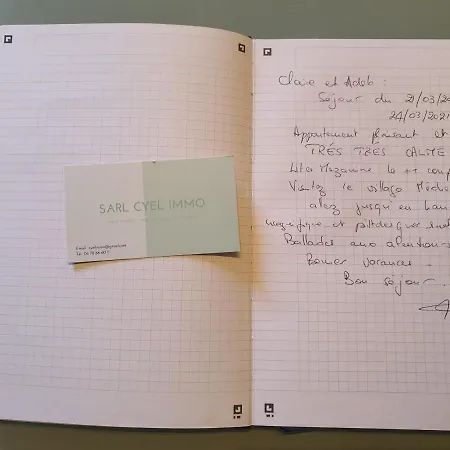 SARL CYEL IMMO
Claire et Adeb :
Séjour du 21/03/20
24/03/2021
Appartement plaisant et
TRÉS TRES CALME
Lits Mezzanine le ++
Visitez le village Médié
allez jusqu'en hau
magnifique et pittoresque
Ballades aux alentours
Bonnes vacances.
Bon séjour.